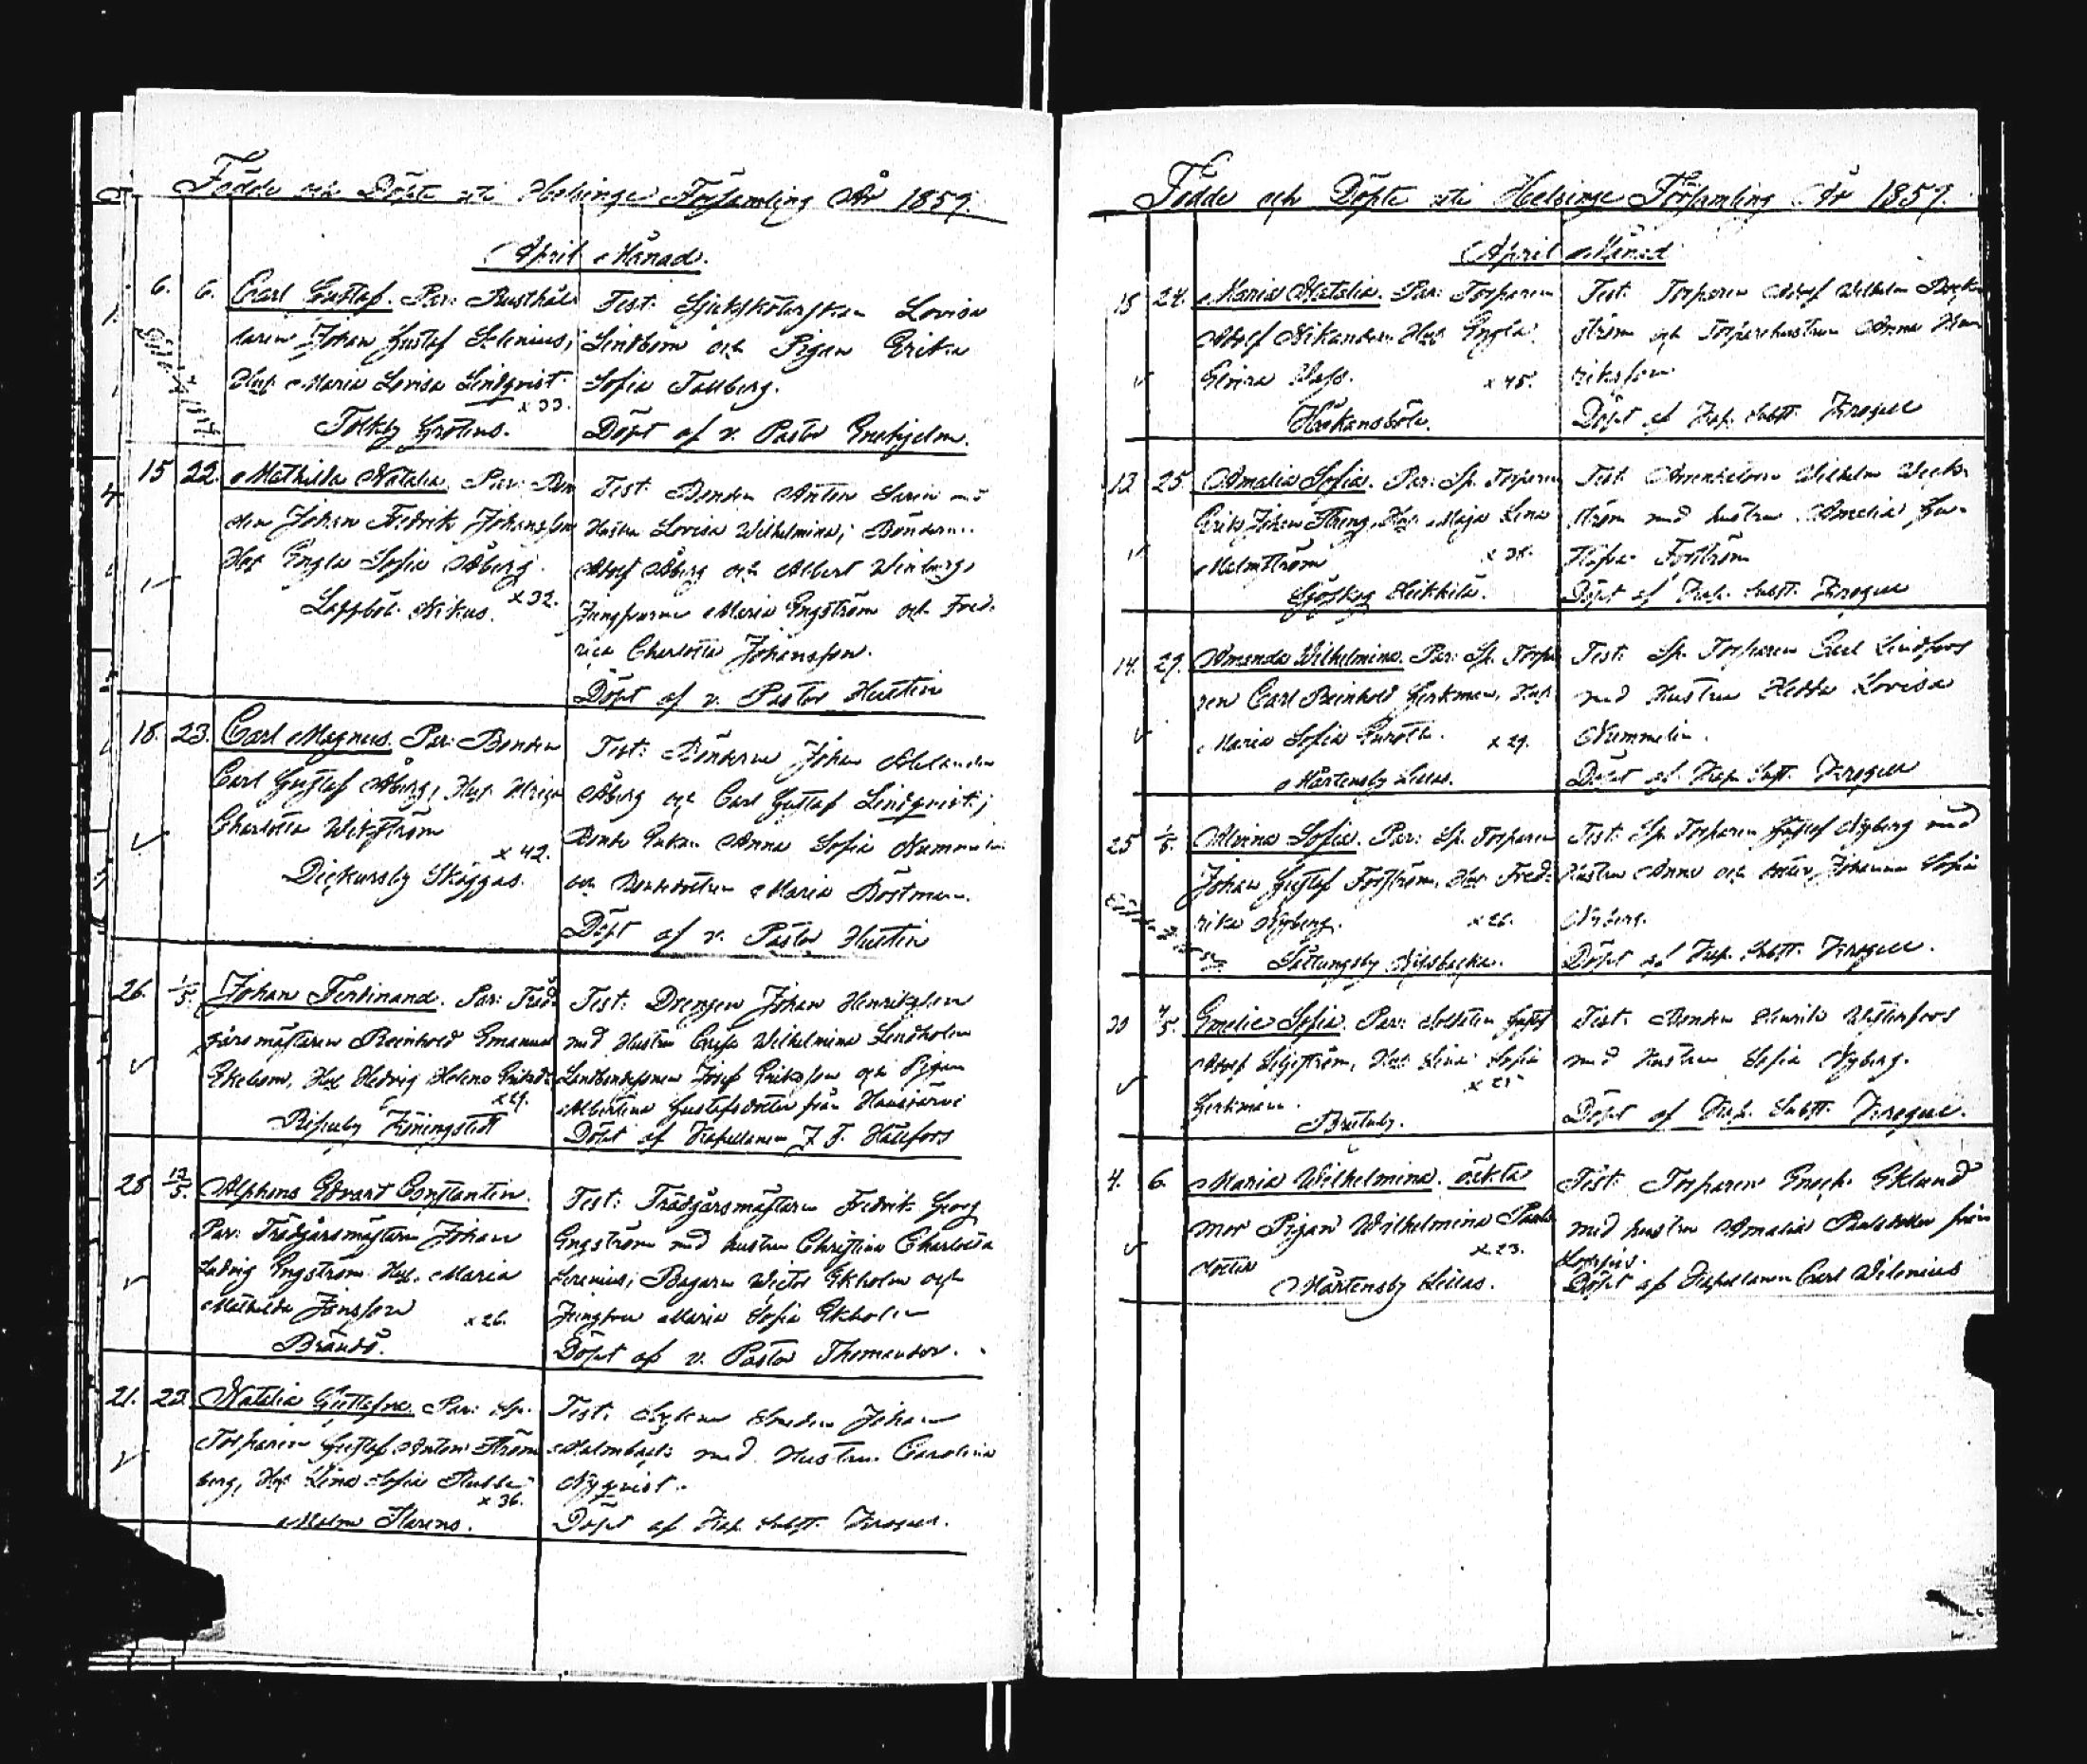 Födde och Döpte uti Helsinge Församling År 1859.
April Månad.
6. 6. Carl Gustaf. Par: Rusthål-
laren Johan Gustaf Selenius;
Hust. Maria Lovisa Lindqvist.
x 33.
Tolkby Grotens.
Test: Sjuksköterskan Lovisa
Lindbom och Pigan Erika
Sofia Tallberg.
Döpt af v. Pastor Grahnhjelm.
15 22. Mathilda Natalia. Par: Bon
den Johan Fredrik Johansson
Hust Engla Sofia Åberg.
x 32.
Lappböle Nikus.
Test: Bonden Anton Sarin med
Hustru Lovisa Wilhelmina; Bönderne
Adolf Åberg och Albert Winberg,
Jungfrurne Maria Engström och Fred-
rica Charlotta Johansson.
Döpt af v. Pastor Hultin
18. 23. Carl Magnus. Par: Bonden
Carl Gustaf Åberg, Hust. Ulrica
Charlotta Wikström
x 42.
Dickursby Skäggas.
Test: Bönderne Johan Alexander
Åberg och Carl Gustaf Lindqvist;
Bonde Enkan Anna Sofia Nummelin
och Bondedottren Maria Böstman.
Döpt af v. Pastor Hultin
26. 1/5. Johan Ferdinand. Par: Träd-
gårsmästaren Reinhold Emanuel
Ekelund, Hust Hedvig Helena
x 29.
Ripuby Köningstedt
Test: Drengen Johan Henriksson
med Hustru Wilhelmina Lindholm
Landbondesonen Josef Eriksson och Pigan
Albertina Gustafsdotter från Hausjärvi
Döpt af Kapellanen J. F. Hällfors
28 12/5. Alphons Edvard Constantin.
Par: Trädgårsmästaren Johan
Ludvig Engström Hust. Maria
Mathilda Jonsson
x 26.
Brändö.
Test: Trädgårsmästaren Fredrik Georg
Engström med hustru Christina Charlotta
Serenius; Bagaren Victor Ekholm och
Jungfrun Maria Sofia Ekholm
Döpt af v. Pastor Thomander.
21. 23. Natalia Gustafva. Par: Sp.
Torparen Gustaf Anton Ström
berg, Hust Lena Sofia Stubbe
x 36.
Malm Starens.
Test: Sockne Smeden Johan
Malmbäck med Hustru Carolina
Nyqvist.
Döpt af Kap. Subst. Krogell.
Födde och Döpte uti Helsinge Församling År 1859.
April Månad
15 24. Maria Natalia. Par: Torparen
Adolf Nikander, Hust Engla
Elvira Wass.
x 45.
Håkansböle.
Test: Torparen Adolf Wilhelm Bäck
ström och Torparehustrun Anna Hen
riksson.
Döpt af Kap. Subst. Krogell
12 25. Amalia Sofia. Par: Sp. Torparen
Erik Johan Streng, Hust Maja Lena
Malmström
Sjöskog Heikkilä.
Test: Wilhelm Weck
ström med hustru Amelia Gu-
stafva Forström
Döpt af Kap. Subst. Krogell
14. 29. Amanda Wilhelmina. Par: Sp. Torpa
ren Carl Reinhold Gerkman, Hust
Maria Sofia
x 29.
Mårtensby Lillas.
Test: Sp. Torparen Carl Lindfors
med Hustru Hedda Lovisa
Nummelin.
Döpt af Kap. Subst. Krogell
25 1/5. Alvina Sofia. Par: Sp. Torparen
Johan Gustaf Forsström, Hust Fred-
rika Nyberg.
x 26.
Sottungsby Nissbacka.
Test: Sp. Torparen Gustaf Nyberg med
Hustru Anna och Johanna Sofia
Nyberg.
Döpt af Kap. Subst. Krogell.
30 4/5. Emelie Sofia. Par: Soldaten Gustaf
Adolf Hust Lena Sofia
x 25
Gerkman.
Brutuby.
Test: Bonden Henrik Westerfors
med Hustru Sofia Nyberg.
Döpt af Kap. Subst. Krogell.
4. 6. Maria Wilhelmina. oäkta
mor Pigan Wilhelmina Pauls
dotter
x 23.
Mårtensby Lillas.
Test: Torparen Enoch Eklund
med hustru Amalia Paulsdotter från
Loppis.
Döpt af Kapellanen Carl Wilenius